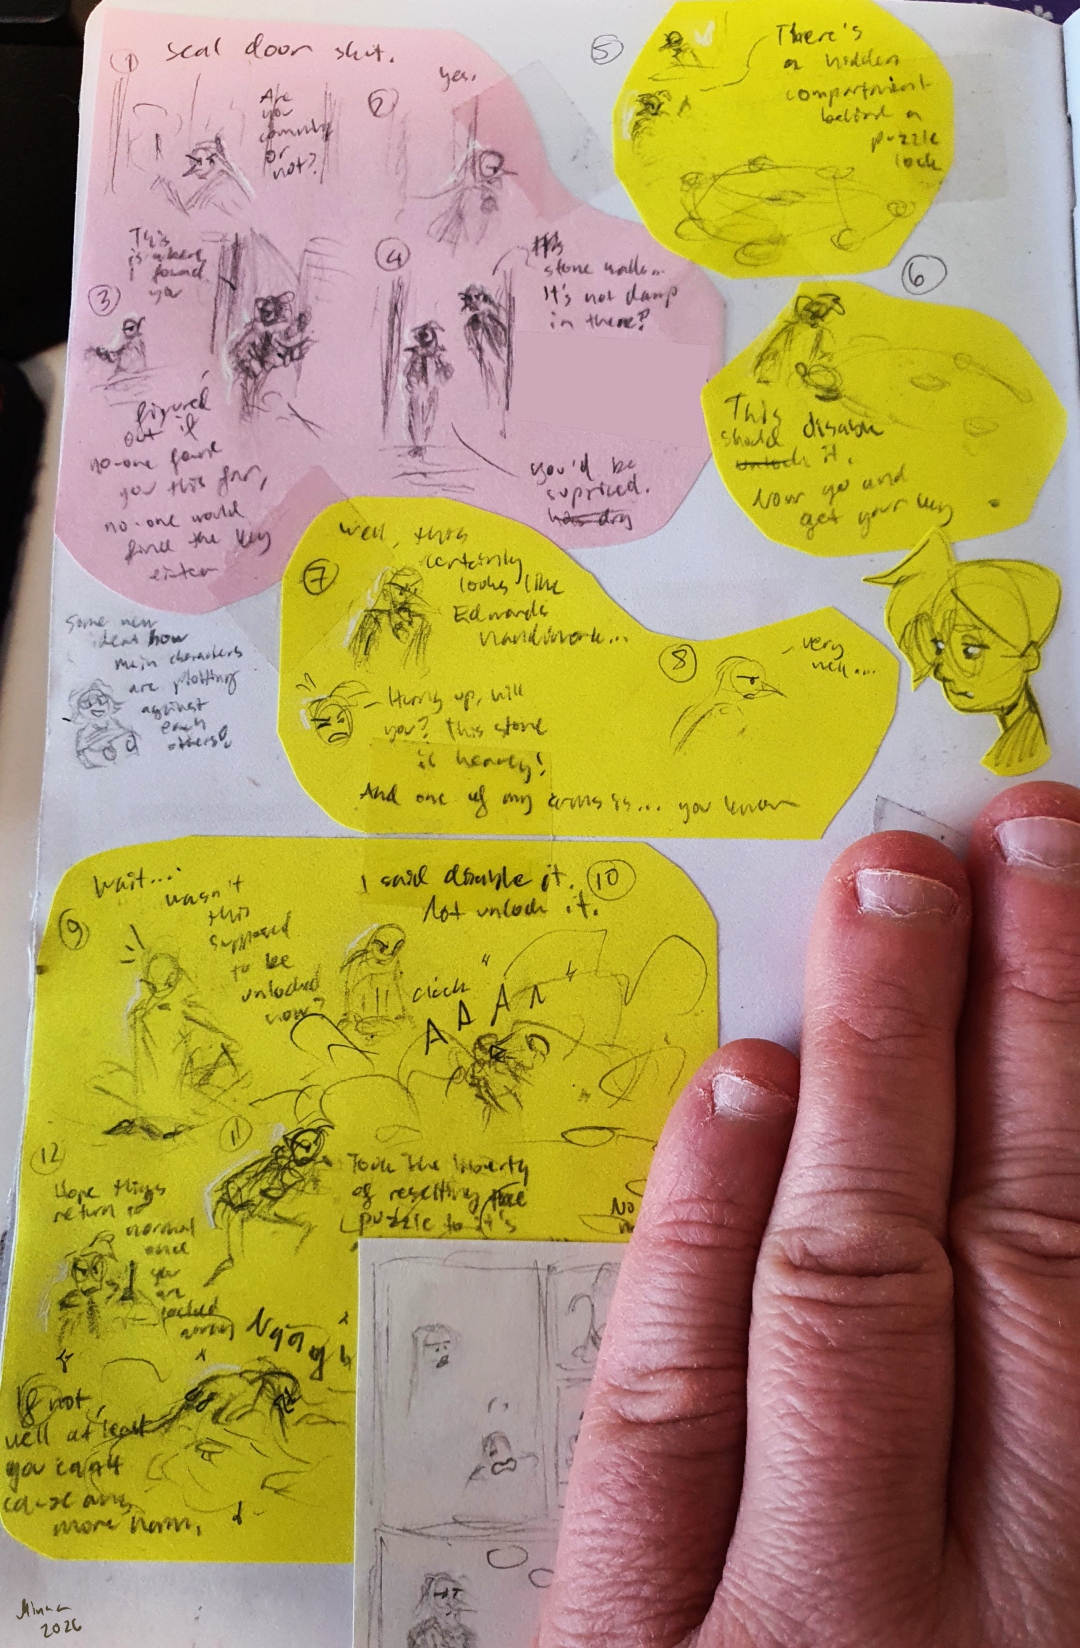 1
seal door shut.
Are
you
coming
or
not?
2
yes.
3
This
is where
I found
you
figured
out if
no-one found
you this far,
no-one would
find the key
either
4
It's
stone walls...
It's not damp
in there?
you'd be
supriced.
5
There's
a hidden
compartment
behind a
puzzle
lock
6
This
should disable
unlock it.
Now go and
get your key
Some new
ideas how
main characters
are plotting
against
each
others?
7
well, this
certainly
looks like
Edwards
handiwork...
Hurry up, will
you? This stone
is heavy!
And one of my arms is... you know
8
very
well...
9
Wait...
wasn't
this
supposed
to be
unlocked
now?
10
I said disable it.
Not unlock it.
"click"
AAAA
11
Took the liberty
of resetting the
puzzle to it's
No
12
Hope things
return to
normal
once
you
are
locked
away
If not,
well at least
you can't
cause any
more harm.
Minna
2026